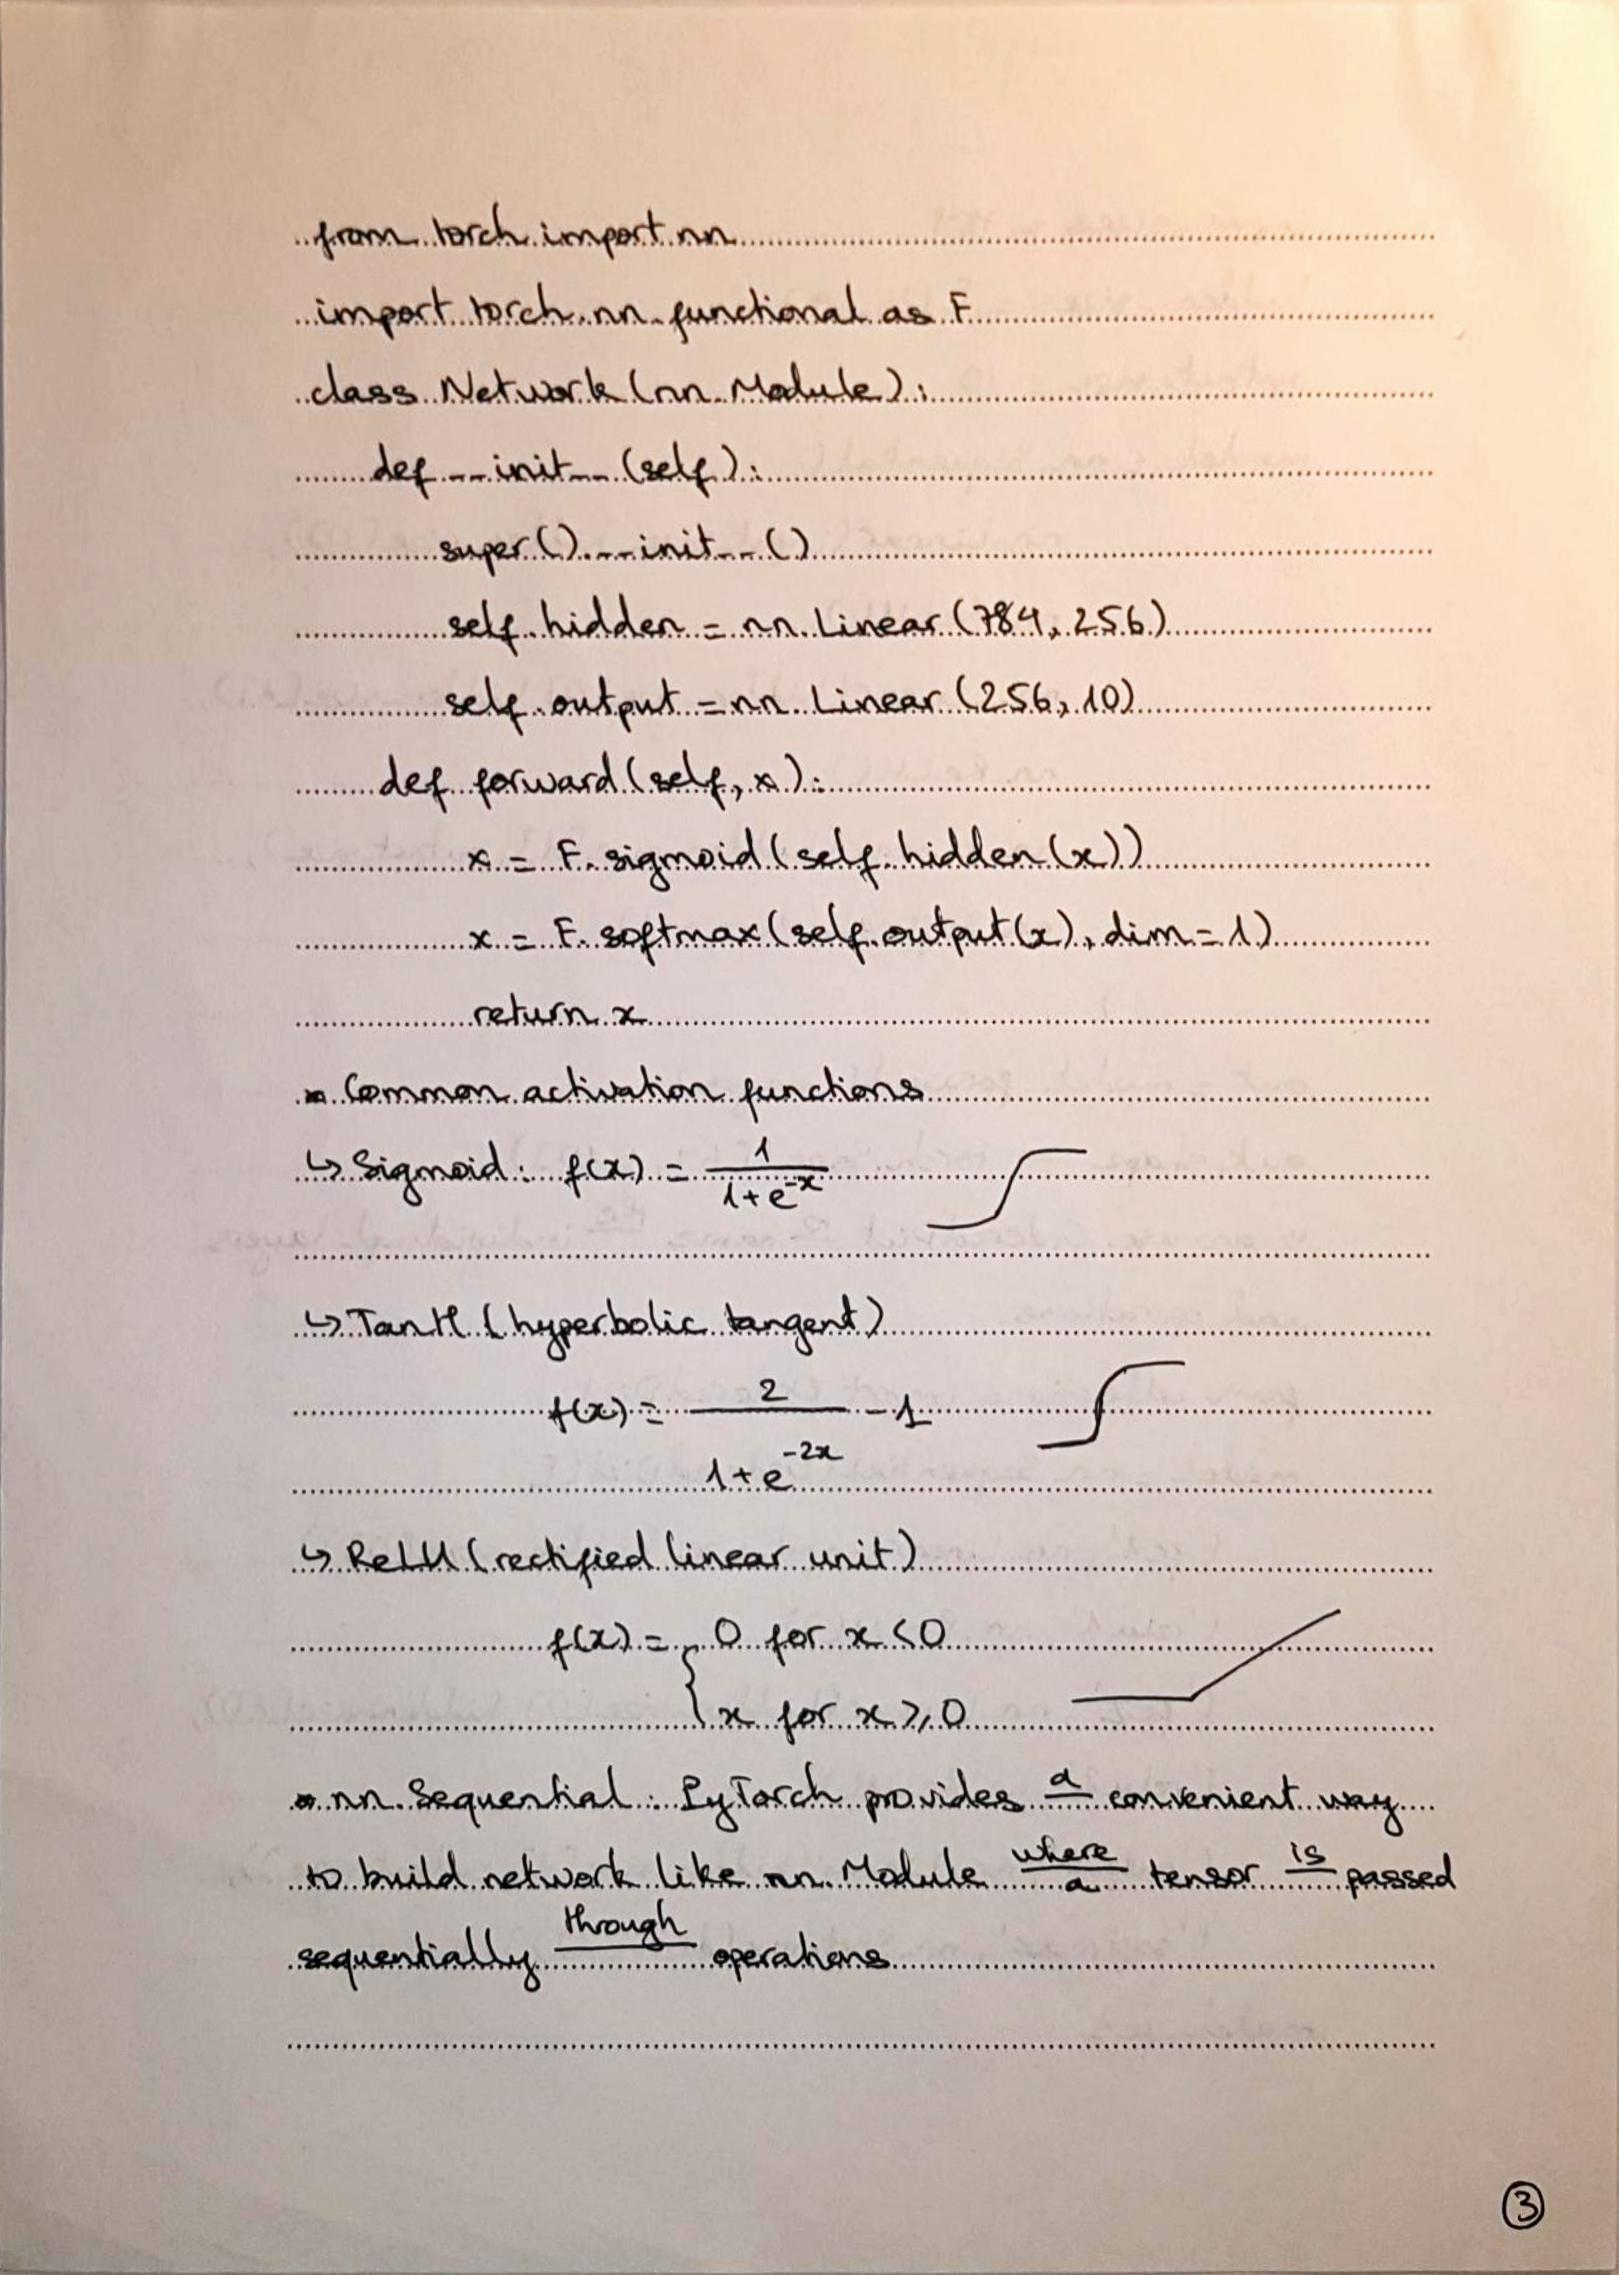 from torch import nn
import torch.nn.functional as F
class Network(nn.Module):
def __init__(self):
super().__init__()
self.hidden = nn.Linear(784, 256)
self.output = nn.Linear(256, 10)
def forward(self, x):
x = F.sigmoid(self.hidden(x))
x = F.softmax(self.output(x), dim=1)
return x
* Common activation functions
↳ Sigmoid: f(x) = 1 / (1+e^-x)
↳ TanH (hyperbolic tangent)
f(x) = 2 / (1+e^-2x) - 1
↳ ReLU (rectified linear unit)
f(x) = { 0 for x < 0
x for x ⩾ 0
* nn.Sequential: PyTorch provides a convenient way
to build network like nn.Module where a tensor is passed
sequentially through operations
3